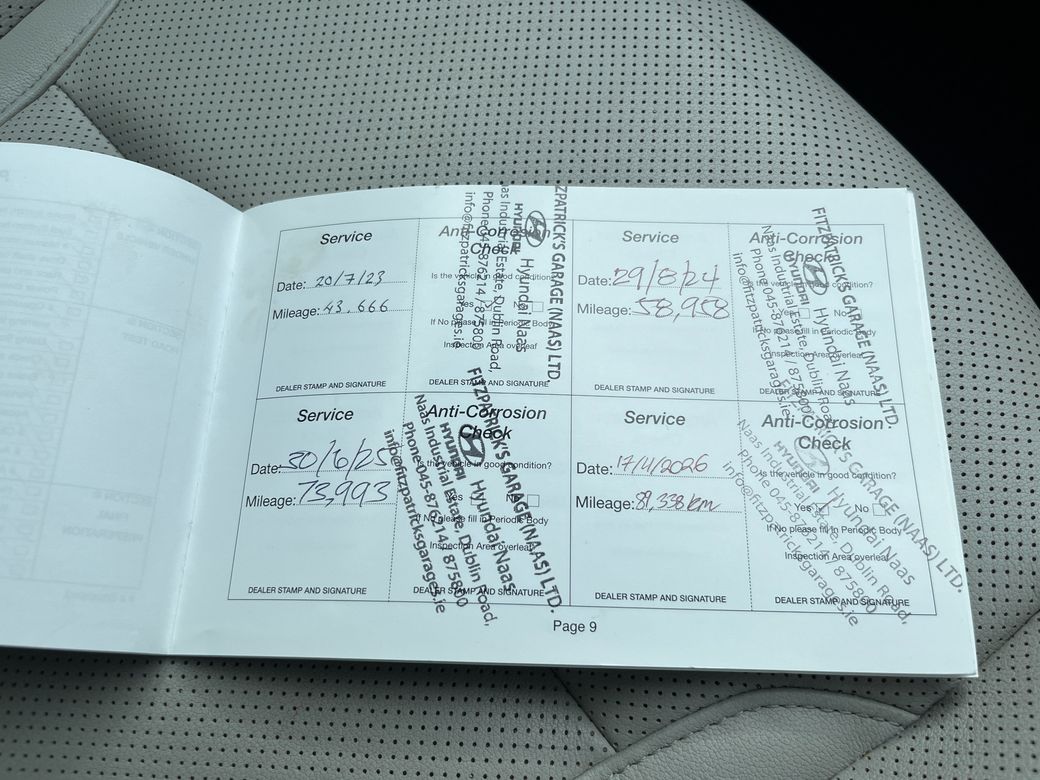 Service
Date: 20/7/23
Mileage: 43.666
DEALER STAMP AND SIGNATURE
Anti-Corrosion
Check
Is the vehicle in good condition?
Yes No
If No please fill in Periodic Body
Inspection Area overleaf
DEALER STAMP AND SIGNATURE
ZPATRICK'S GARAGE (NAAS) LTD.
HYUNDAI Hyundai Naas
aas Industrial Estate, Dublin Road,
Phone 045-876214 / 875800
info@fitzpatricksgarages.ie
Service
Date: 29/8/24
Mileage: 58,958
DEALER STAMP AND SIGNATURE
Anti-Corrosion
Check
Is the vehicle in good condition?
Yes No
If No please fill in Periodic Body
Inspection Area overleaf
DEALER STAMP AND SIGNATURE
FITZPATRICK'S GARAGE (NAAS) LTD.
HYUNDAI Hyundai Naas
Naas Industrial Estate, Dublin Road,
Phone 045-876214 / 875800
info@fitzpatricksgarages.ie
Service
Date: 30/6/25
Mileage: 73,993
DEALER STAMP AND SIGNATURE
Anti-Corrosion
Check
Is the vehicle in good condition?
Yes No
If No please fill in Periodic Body
Inspection Area overleaf
DEALER STAMP AND SIGNATURE
FITZPATRICK'S GARAGE (NAAS) LTD.
HYUNDAI Hyundai Naas
Naas Industrial Estate, Dublin Road,
Phone 045-876214 / 875800
info@fitzpatricksgarages.ie
Service
Date: 17/4/2026
Mileage: 89,338 km
DEALER STAMP AND SIGNATURE
Anti-Corrosion
Check
Is the vehicle in good condition?
Yes No
If No please fill in Periodic Body
Inspection Area overleaf
DEALER STAMP AND SIGNATURE
FITZPATRICK'S GARAGE (NAAS) LTD.
HYUNDAI Hyundai Naas
Naas Industrial Estate, Dublin Road,
Phone 045-876214 / 875800
info@fitzpatricksgarages.ie
Page 9